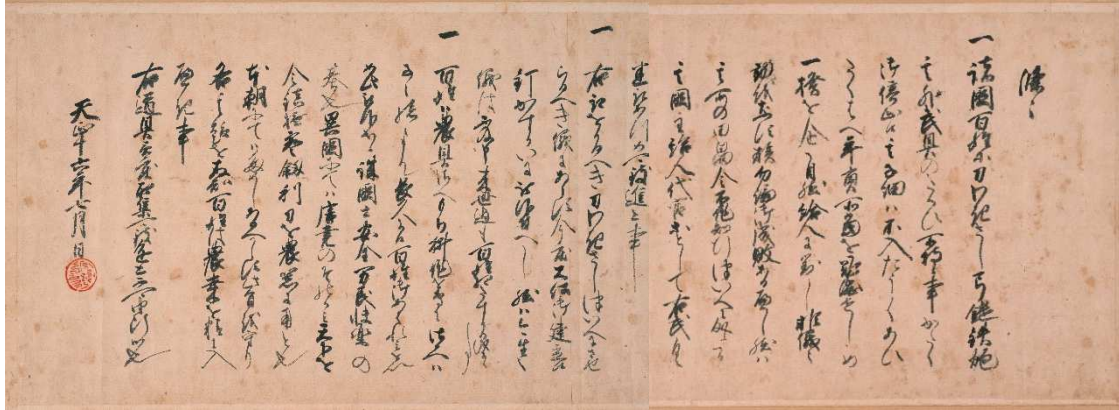 條々
一 諸国百姓等刀わきさし弓鑓鉄炮
其外武具のたくひ所持候事かたく
御停止候其子細ハ不入たうくあひ
たくハへ年貢所当を難渋せしめ
一揆を企自然給人に対し非儀之
動をなす族勿論御成敗あるへし然ハ
其所の田畠令不作知行ついへ候間
其国主給人代官等として右武具
悉取あつめ可致進上事
一 右取をかるへき刀わきさしついへにさせ
らるへき儀にあらす今度大仏御建立
釘かすかひに被仰付へし然ハ今生之
儀ハ不及申来世迄も百姓相たすかる
一 百姓ハ農具さへもち耕作を専に仕候へハ
国土安全万民快楽の
基也異国にてハ唐尭のそのかみ天下を
令鎮撫宝剣利刀を農器に用と也
本朝にてハためしあるへからす此旨を守り
各其趣を存知百姓ハ農桑を精に入
へき事
右道具急度取集
天正十六年七月 日